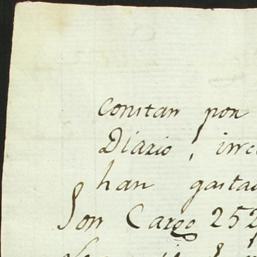 constan por
Diario, inve
han gasta
Son Cargo 252